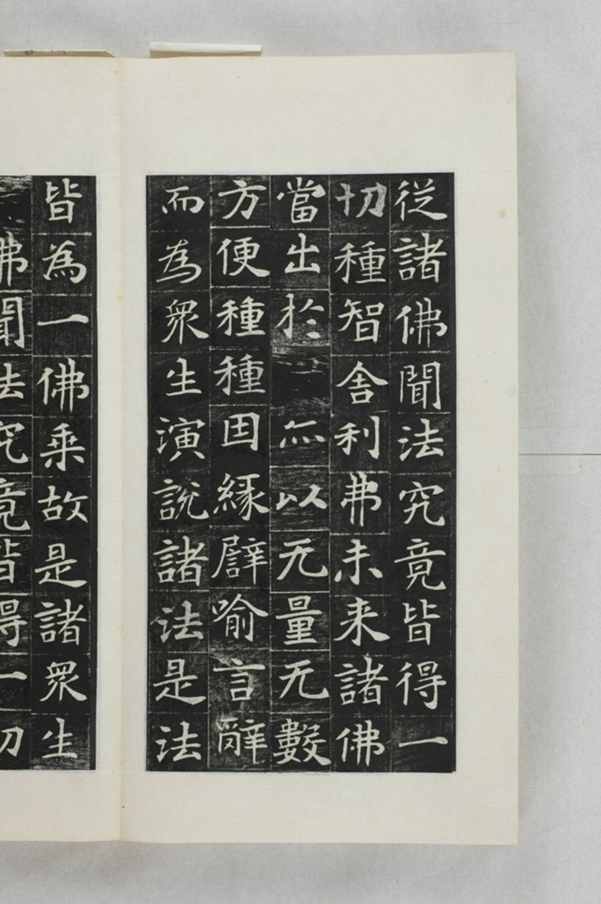 從諸佛聞法究竟皆得一
切種智舍利弗未来諸佛
當出於亦以无量无數
方便種種因緣譬喻言辭
而為衆生演説諸法是法
皆為一佛乗故是諸衆生
佛聞法究竟皆得一切